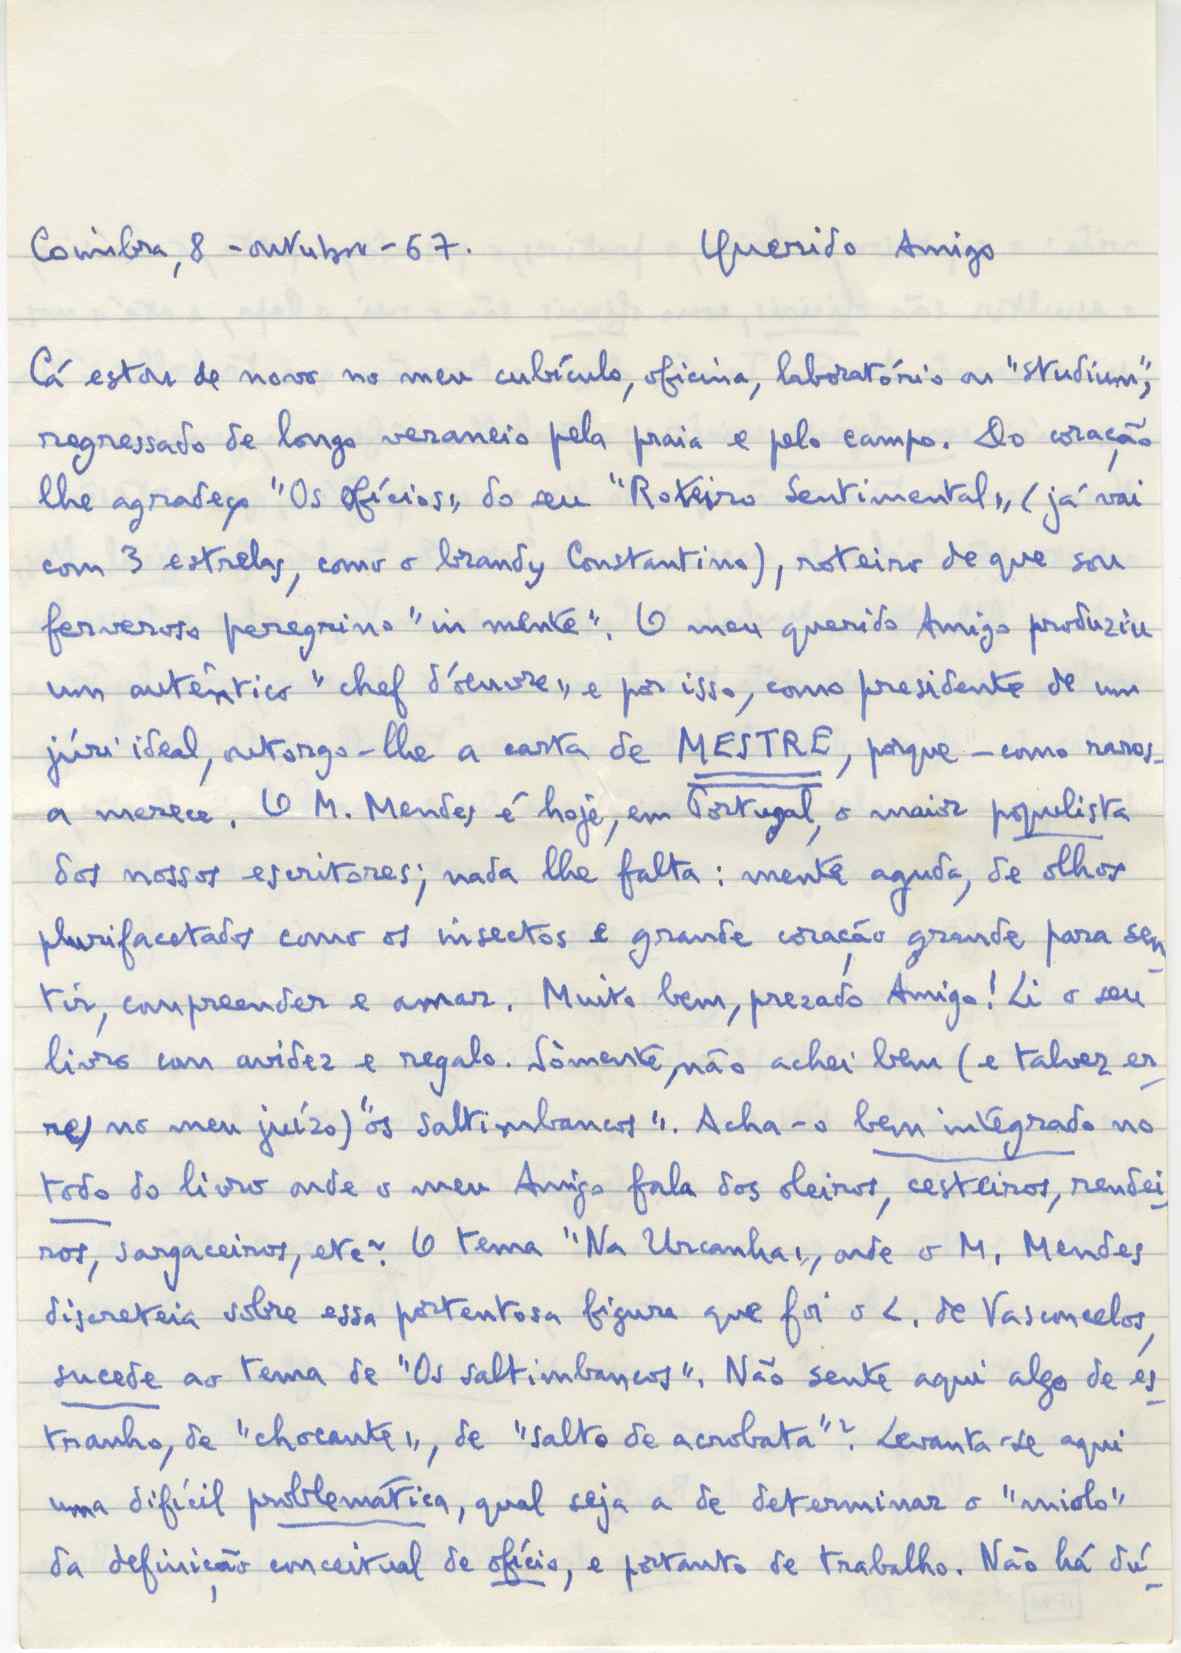 Coimbra, 8 - outubro - 67. Querido Amigo
Cá estou de novo no meu cubículo, oficina, laboratório ou "studium",
regressado de longo veraneio pela praia e pelo campo. Do coração
lhe agradeço "Os Ofícios" do seu "Roteiro Sentimental" (já vai
com 3 estrelas, como o brandy Constantino), roteiro de que sou
fervoroso peregrino "in mente". O meu querido Amigo produziu
um autêntico "chef d'oeuvre" e por isso, como presidente de um
júri ideal, outorgo-lhe a carta de MESTRE, porque - como raros -
a merece. O M. Mendes é hoje, em Portugal, o maior populista
dos nossos escritores; nada lhe falta: mente aguda, de olhos
plurifacetados como os insectos e grande coração grande para sen-
tir, compreender e amar. Muito bem, prezado Amigo! Li o seu
livro com avidez e regalo. Sòmente, não achei bem (e talvez er-
re no meu juízo) "os saltimbancos". Acha-o bem integrado no
todo do livro onde o meu Amigo fala dos oleiros, cesteiros, rendei-
ros, sargaceiros, etc? O tema "Na Ucanha", onde o M. Mendes
discreteia sobre essa portentosa figura que foi o L. de Vasconcelos,
sucede ao tema de "Os saltimbancos". Não sente aqui algo de es-
tranho, de "chocante", de "salto de acrobata"? Levanta-se aqui
uma difícil problemática, qual seja a de determinar o "miolo"
da definição conceitual de ofício, e portanto de trabalho. Não há dú-